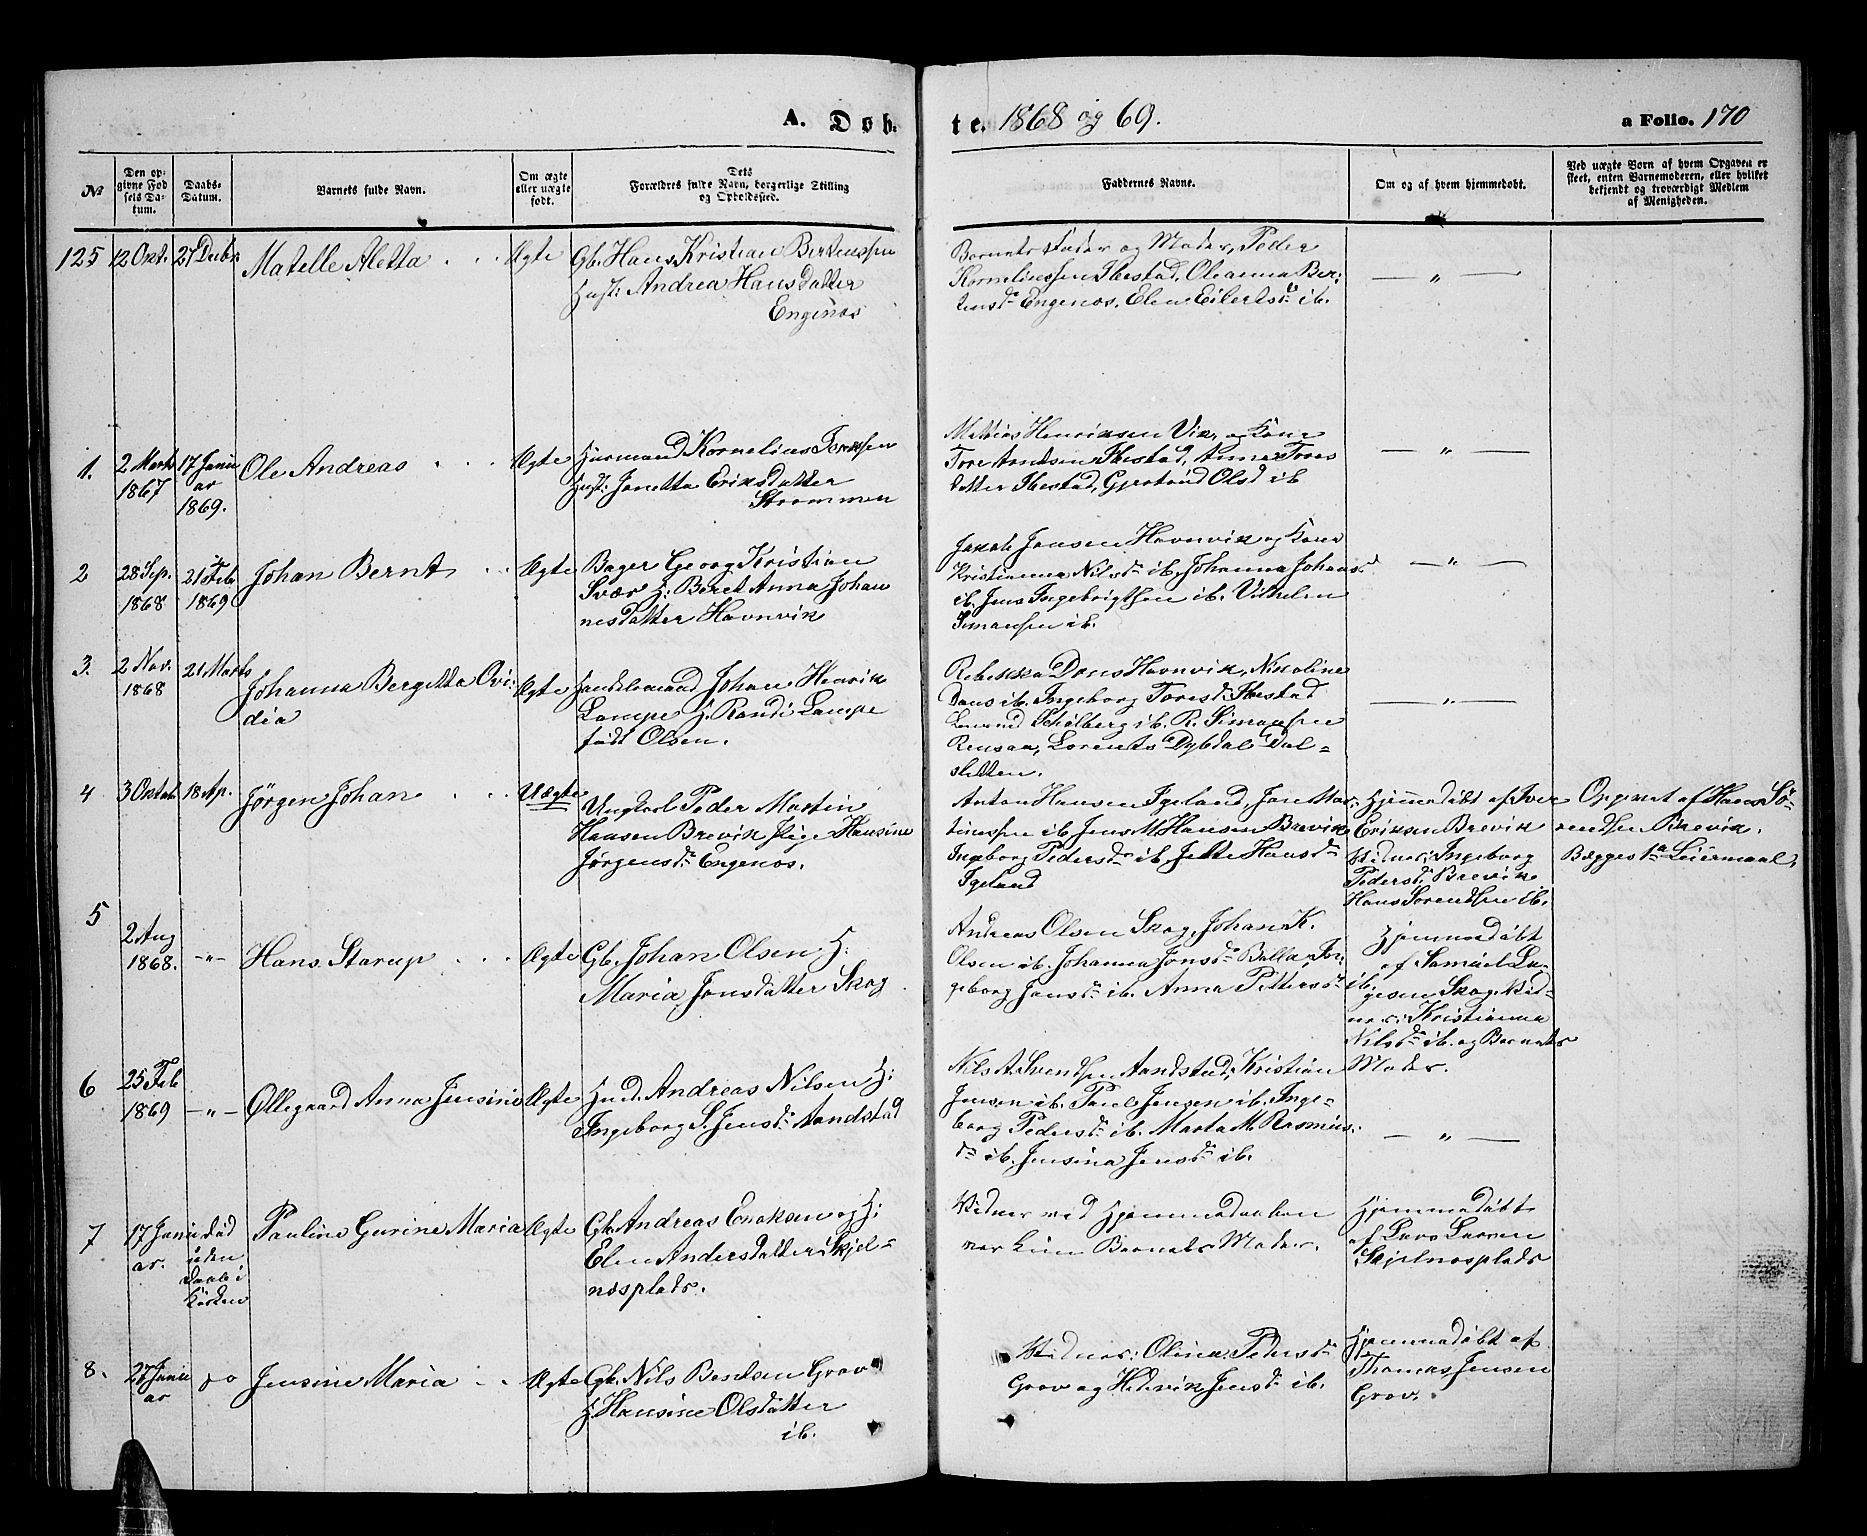 A. Døb-
te. 1868 og 69.
a Folio. 170
No
Den op-
givne Fød
sels Da-
tum.
Daabs-
Datum.
Barnets fulde Navn.
Om ægte
eller uægte
født.
Dets
Forældres fulde Navn, borgerlige Stilling
og Opholdssted.
Faddernes Navne.
Om og af hvem hjemmedøbt.
Ved uægte Børn af hvem Opgaven er
skeet, enten Barnemoderen, eller hvilket
bekjendt og troværdigt Medlem
af Menigheden.
125
12 Okt.
27 Decbr
Matelle Aletta
Ægte
Gb. Hans Kristian Bertenssen
Hust: Andrea Hansdatter
Engenes
Barnets Fader og Moder, Peder
Korneliussen Ibestad, Oleanna Ber-
tensdr Engenos, Elen Eilertsdr ib.
— " —
1.
2 Marts
1867
17 Janu
ar
1869.
Ole Andreas
Ægte
Huusmand Kornelius
Hust: Janetta Eriksdatter
Strømmen
Mathias Henriksen Vik, og Kone
Tore Ibestad, Anna Tores
datter Ibestad, Gjertrud Olsd ib
— " —
2
28 Sep.
1868
21 Feb
1869
Johan Bernt
Ægte
Bager Georg Kristian
Svær H: Beret Anna Johan
nesdatter Havnvik
Jakob Jensen Havnvik og Kone
Kristianna Nilsdr ib. Johanna Johansd
ib. Jens Ingebrigtsen ib. Vilhelm
Simonsen ib.
— " —
3.
2 Nov.
1868
21 Marts
Johanna Bergitta Ovi-
dia
Ægte
Handelsmand Johan Henrik
Lampe H. Randi Lampe
født Olsen.
Rebekka Dons Havnvik, Nikoline
Dons ib. Ingeborg Toresd. Ibestad
Schølberg ib. R. Simonsen
Rensaa, Lorents Dybdal Dal-
sletten.
— " —
4
3 Oktob
18 Ap.
Jørgen Johan
Uægte
Ungkarl Peder Martin
Hansen Brevik Pige Hansine
Jørgensdr Engenos.
Anton Hansen Igeland, Jon Mar-
tinssen ib. Jens M. Hansen Brevik
Ingeborg Pedersdr ib. Jette Hansdr
Igeland
Hjemmedøbt af Iver
Eriksen Brevik
Vidner: Ingeborg
Pedersd. Brevik
Hans Sørensen ib.
Opgivet af Hans Sö-
rensen Brevik.
Begges 1ste Leiermaal.
5
2 Aug
1868.
-"-
Hans Starup
Ægte
Gb. Johan Olsen H:
Maria Jonsdatter Skog
Andreas Olsen Skog, Johan K.
Olsen ib. Johanna Jonsdr Bolla, In-
geborg Jonsdr ib. Anna Pettersdr
ib.
Hjemmedøbt
af Samuel La-
gesen Skog. Vid-
ner: Kristianna
Nilsdr ib. og Barnets
Moder.
6
25 Feb
1869
-"-
Ollegaard Anna Jensine
Ægte
Huusmd. Andreas Nilsen H:
Ingeborg S. Jensdr Aandstad
Nils A. Svendsen Aandstad, Kristian
Jensen ib. Paul Jensen ib. Inge-
borg Pedersdr ib. Marta M. Rasmus-
dr ib. Jensina Jensdr ib.
— " —
7
17 Janu
ar.
død
uden
Daab i
Kirken
Pauline Gurine Maria
Ægte
Gb. Andreas Enoksen og H:
Elen Andersdatter Skjel-
nesplads.
Vidner ved Hjemmedaaben
var kun Barnets Moder.
Hjemmedøbt
af Lars Larsen
Skjelnesplads
8.
27 Janu
ar
do
Jensine Maria
Ægte
Gb. Nils Bentsen Grov
H. Hansine Olsdatter
ib.
Vidner: Olina Pedersdr
Grov og Hedevik Jensdr ib.
Hjemmedøbt af
Thomas Jensen
Grov.